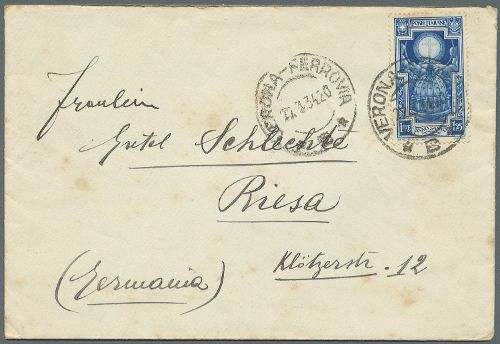 POSTE ITALIANE
VERONA-FERROVIA
22.3.34.20
VERONA
Fraulein
Gretel Schlechte
Riesa
Klötzerstr. 12
(Germania)